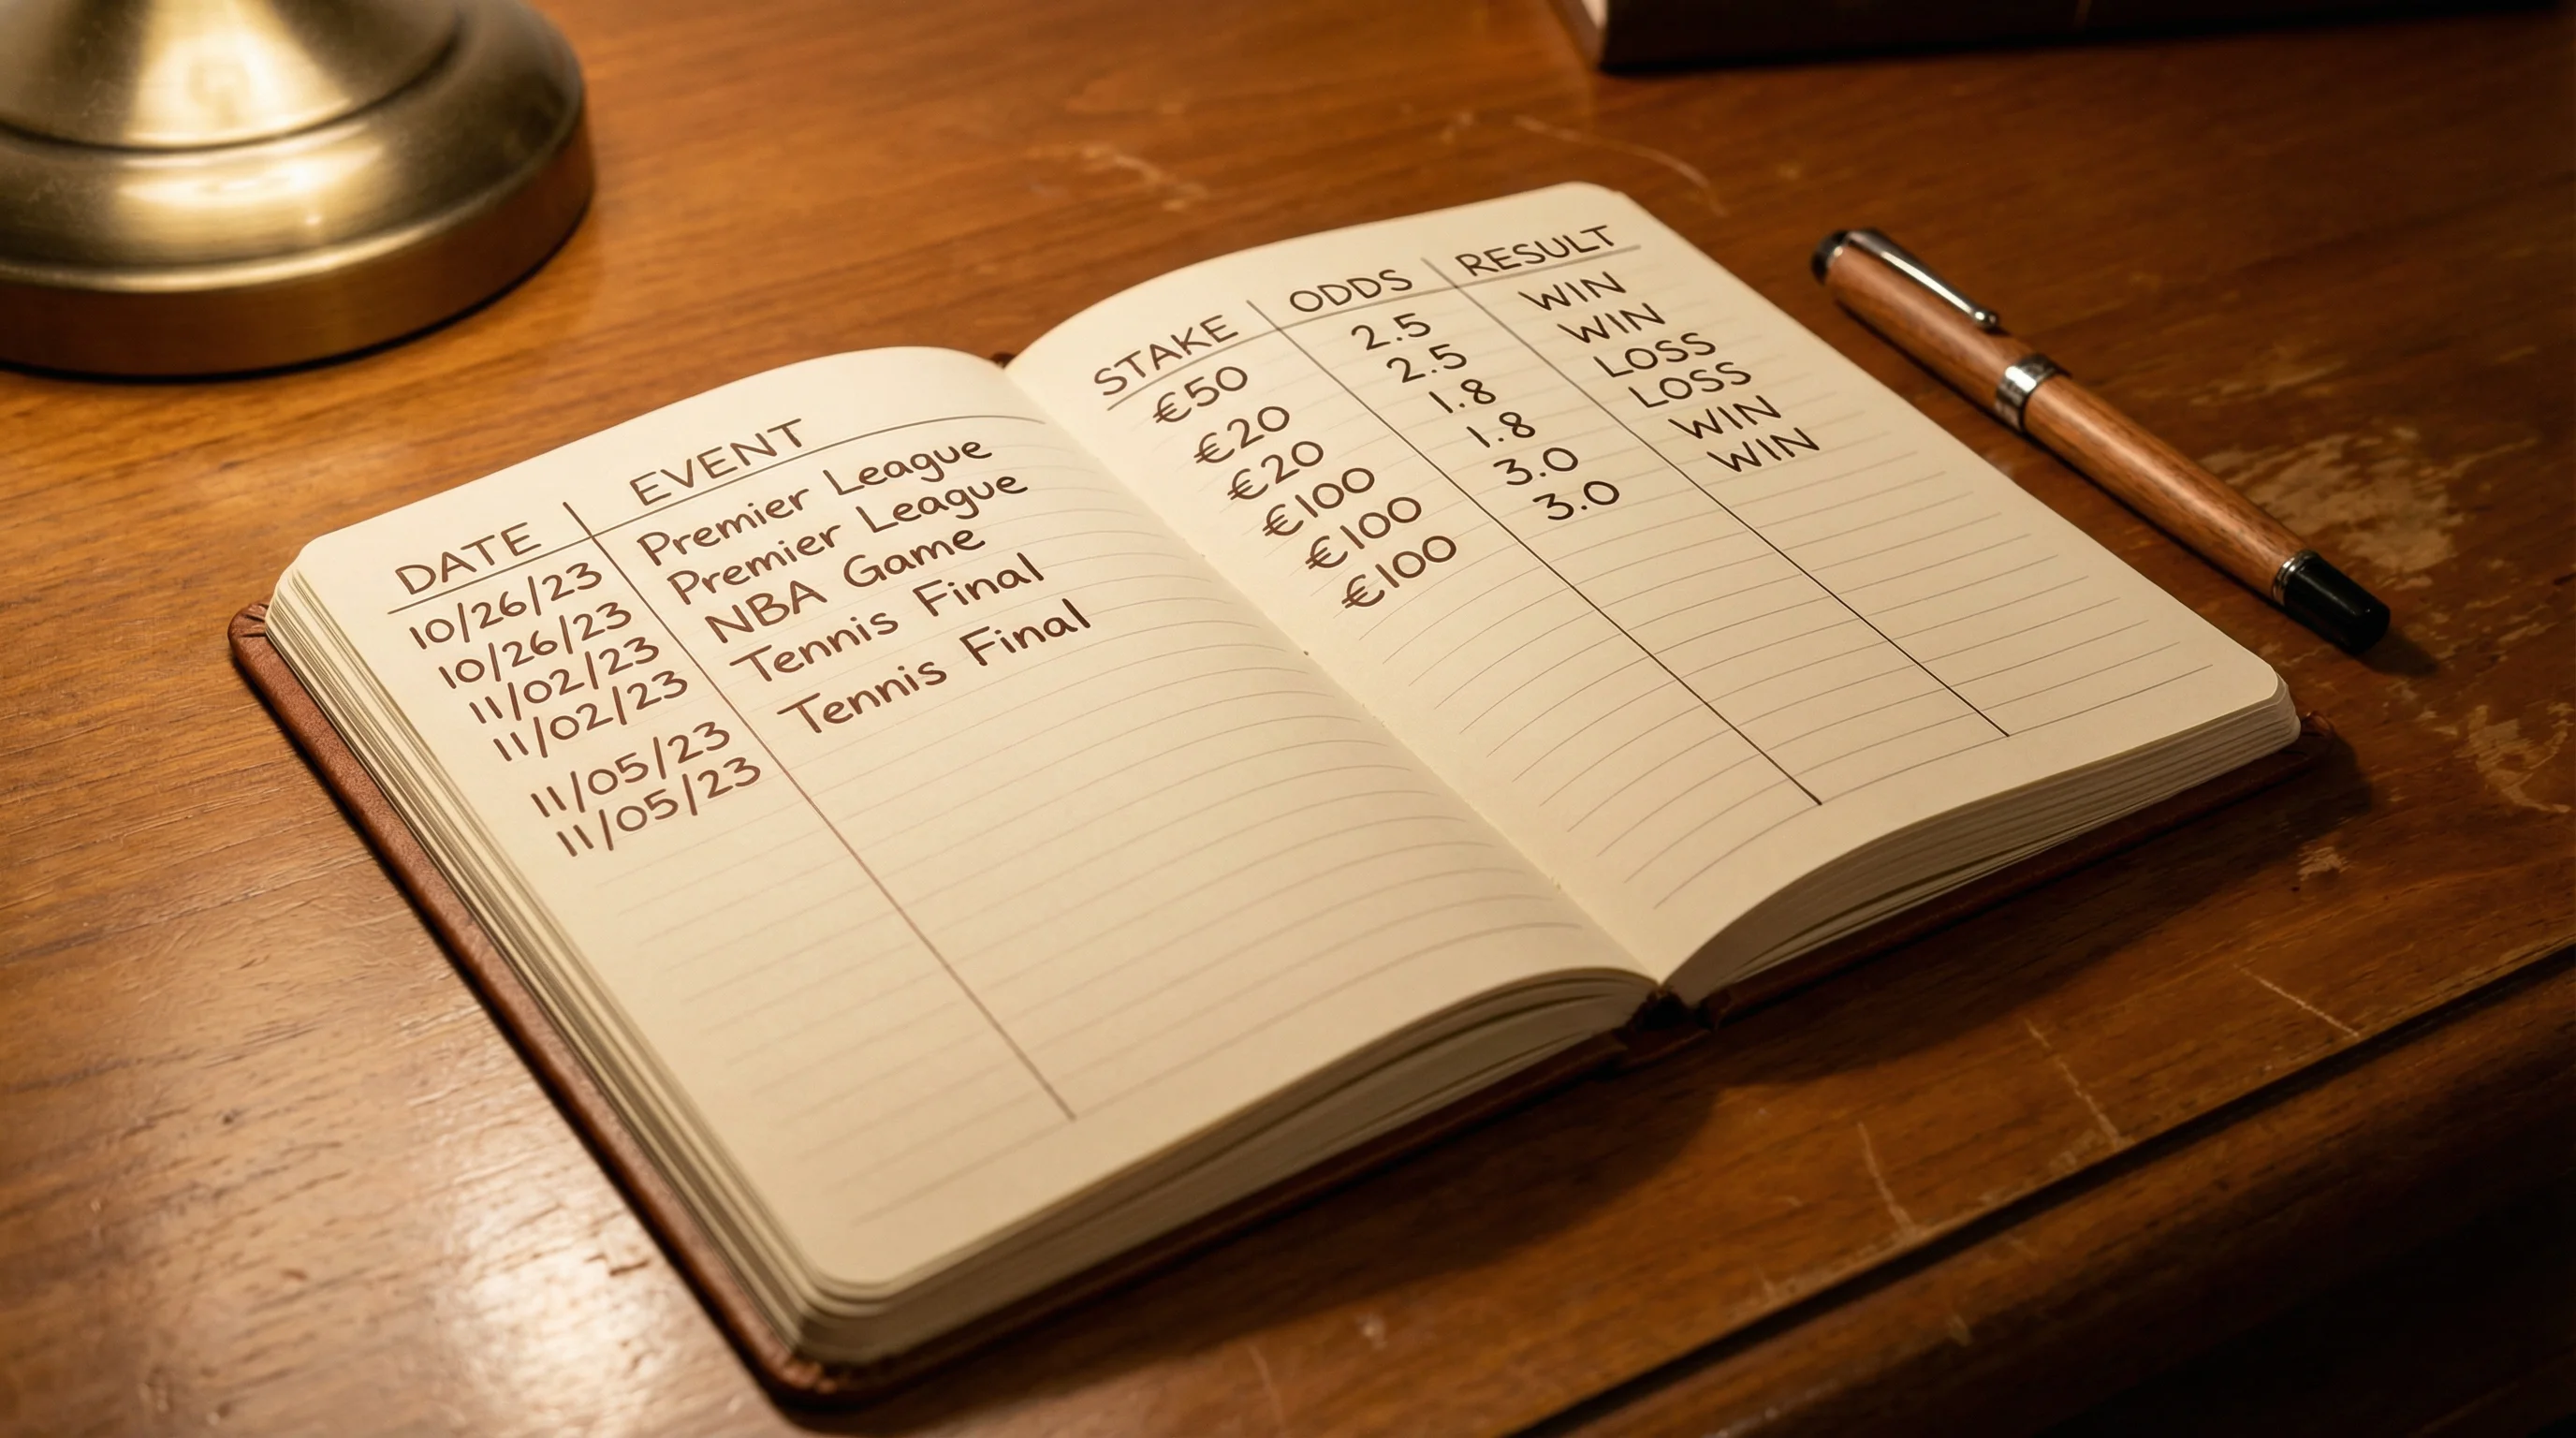 DATE
10/26/23
10/26/23
11/02/23
11/02/23
11/05/23
11/05/23
EVENT
Premier League
Premier League
NBA Game
Tennis Final
Tennis Final
STAKE
€50
€20
€20
€100
€100
€100
ODDS
2.5
2.5
1.8
1.8
3.0
3.0
RESULT
WIN
WIN
LOSS
LOSS
WIN
WIN